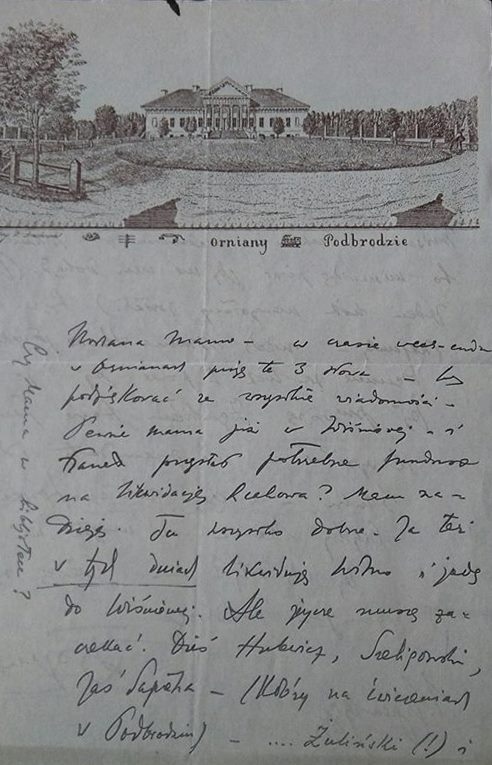 orniany Podbrodzie
Kochana Mamo - w czasie week-endu
w Ornianach piszę te 3 słowa - by
podziękować za wszystkie wiadomości -
Pewnie mama już w Wiśniowej - i
Franek przysłał potrzebne fundusze
na likwidację ? Mam na-
dzieję. Tu wszystko dobrze. Ja też
w tych dniach likwiduję i jadę
do Wiśniowej. Ale jeszcze muszę za-
czekać. Dziś Hutewicz, Szeligowski,
Jaś Sapieha - (który na ćwiczeniach
w Podbrodziu) - .... Żuliński (!) i
Czy Mama w ?